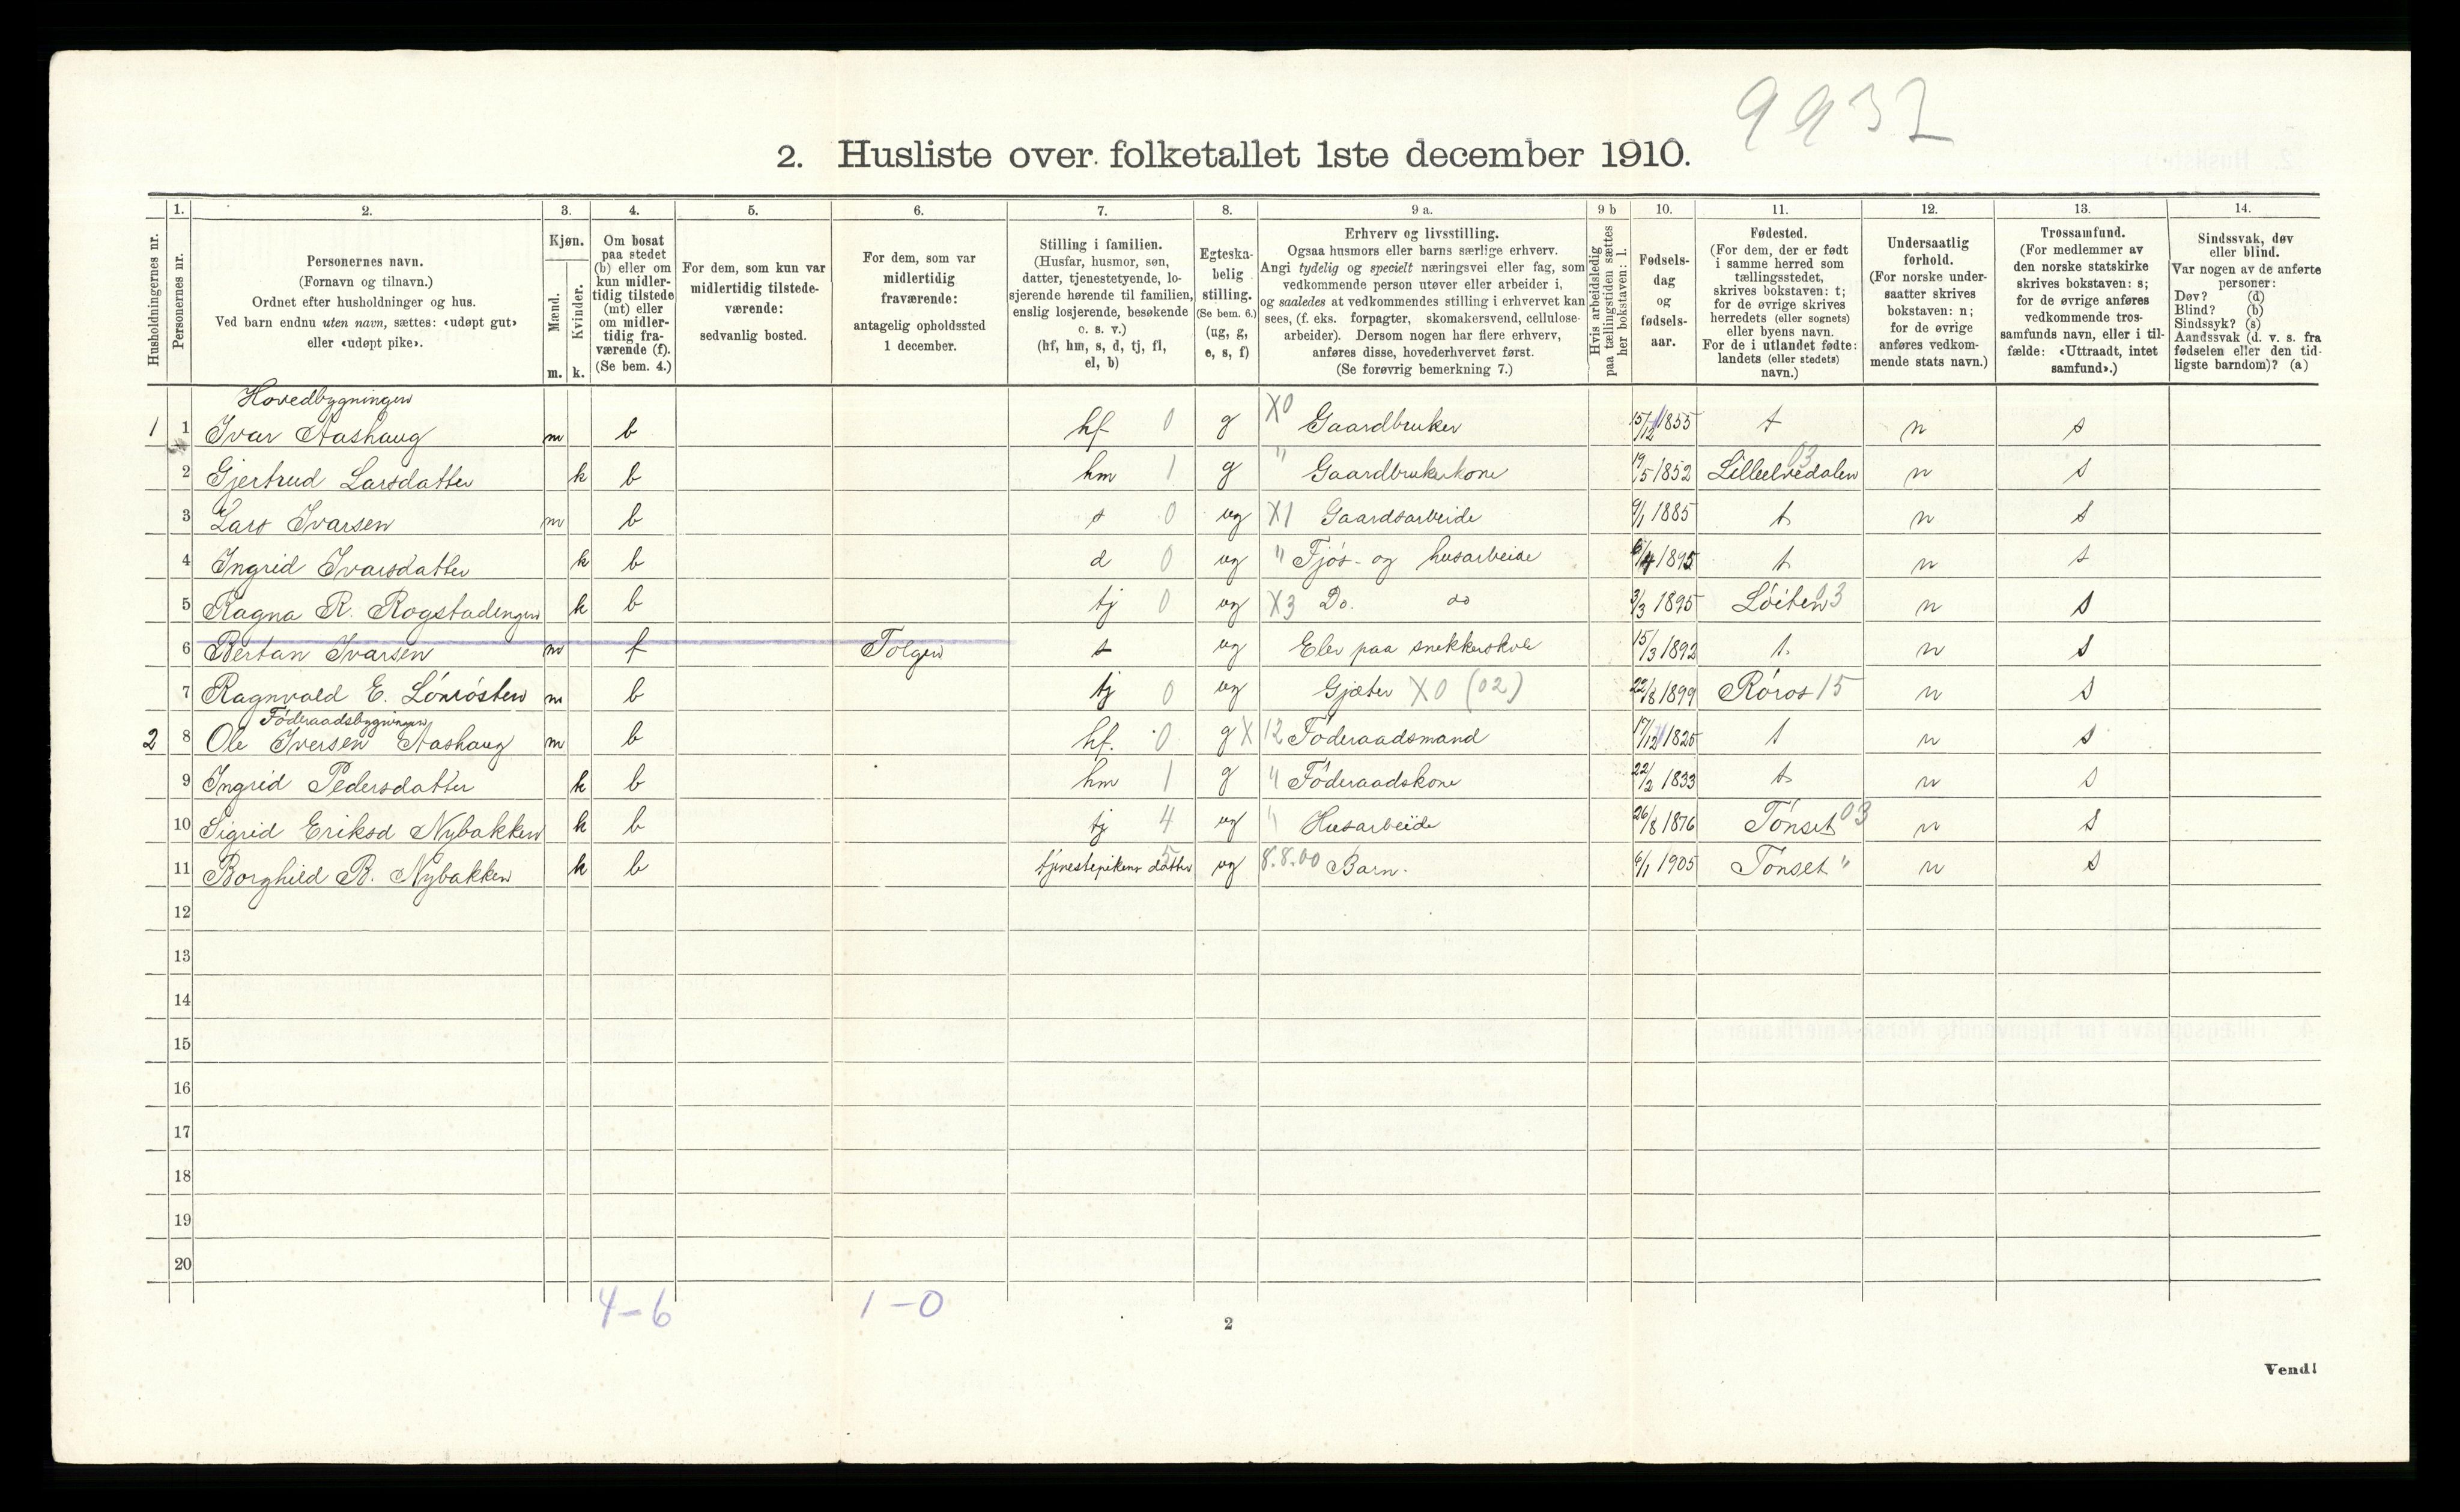 9932
2. Husliste over folketallet 1ste december 1910.
1. 2. 3. 4. 5. 6. 7. 8. 9 a. 9 b 10. 11. 12. 13. 14.
Husholdningernes nr.
Personernes nr.
Personernes navn.
(Fornavn og tilnavn.)
Ordnet efter husholdninger og hus.
Ved barn endnu uten navn, sættes: «udøpt gut»
eller «udøpt pike».
Kjøn.
Mænd.
Kvinder.
m. k.
Om bosat
paa stedet
(b) eller om
kun midler-
tidig tilstede
(mt) eller
om midler-
tidig fra-
værende (f).
(Se bem. 4.)
For dem, som kun var
midlertidig tilstede-
værende:
sedvanlig bosted.
For dem, som var
midlertidig
fraværende:
antagelig opholdssted
1 december.
Stilling i familien.
(Husfar, husmor, søn,
datter, tjenestetyende, lo-
sjerende hørende til familien,
enslig losjerende, besøkende
o. s. v.)
(hf, hm, s, d, tj, fl,
el, b)
Egteska-
belig
stilling.
(Se bem. 6.)
(ug, g,
e, s, f)
Erhverv og livsstilling.
Ogsaa husmors eller barns særlige erhverv.
Angi tydelig og specielt næringsvei eller fag, som
vedkommende person utøver eller arbeider i,
og saaledes at vedkommendes stilling i erhvervet kan
sees, (f. eks. forpagter, skomakersvend, cellulose-
arbeider). Dersom nogen har flere erhverv,
anføres disse, hovederhvervet først.
(Se forøvrig bemerkning 7.)
Hvis arbeidsledig
paa tællingstiden sættes
her bokstaven: l.
Fødsels-
dag
og
fødsels-
aar.
Fødested.
(For dem, der er født
i samme herred som
tællingsstedet,
skrives bokstaven: t;
for de øvrige skrives
herredets (eller sognets)
eller byens navn.
For de i utlandet fødte:
landets (eller stedets)
navn.)
Undersaatlig
forhold.
(For norske under-
saatter skrives
bokstaven: n;
for de øvrige
anføres vedkom-
mende stats navn.)
Trossamfund.
(For medlemmer av
den norske statskirke
skrives bokstaven: s;
for de øvrige anføres
vedkommende tros-
samfunds navn, eller i til-
fælde: «Uttraadt, intet
samfund».)
Sindssvak, døv
eller blind.
Var nogen av de anførte
personer:
Døv? (d)
Blind? (b)
Sindssyk? (s)
Aandssvak (d. v. s. fra
fødselen eller den tid-
ligste barndom)? (a)
Hovedbygningen
1 1 Ivar Aashaug m b hf 0 g X0 Gaardbruker 15/12 1855 t n s
2 Gjertrud Larsdatter k b hm 1 g " Gaardbrukerkone 19/5 1852 Lilleelvedalen 03 n s
3 Lars Ivarsen m b s 0 ug X1 Gaardsarbeide 9/1 1885 t n s
4 Ingrid Ivarsdatter k b d 0 ug " Fjøs- og husarbeide 6/4 1895 t n s
5 Ragna R. Rogstadengen k b tj 0 ug X3 Do. do 3/3 1895 Løiten 03 n s
6 Bertan Ivarsen m f Tolgen s ug Elev paa snekkerskole 15/3 1892 t n s
7 Ragnvald E. Lønrøsten m b tj 0 ug Gjæter X0 (02) 22/8 1899 Røros 15 n s
Føderaadsbygningen
2 8 Ole Iversen Aashaug m b hf. 0 g X 12 Føderaadsmand 17/12 1825 t n s
9 Ingrid Pedersdatter k b hm 1 g " Føderaadskone 22/2 1833 t n s
10 Sigrid Eriksd Nybakken k b tj 4 ug " Husarbeide 26/8 1876 Tønset 03 n s
11 Borghild B. Nybakken k b tjenestepikens datter 5 ug 8.8.00 Barn. 6/1 1905 Tønset " n s
12
13
14
15
16
17
18
19
20
4-6 1-0
2
Vend!